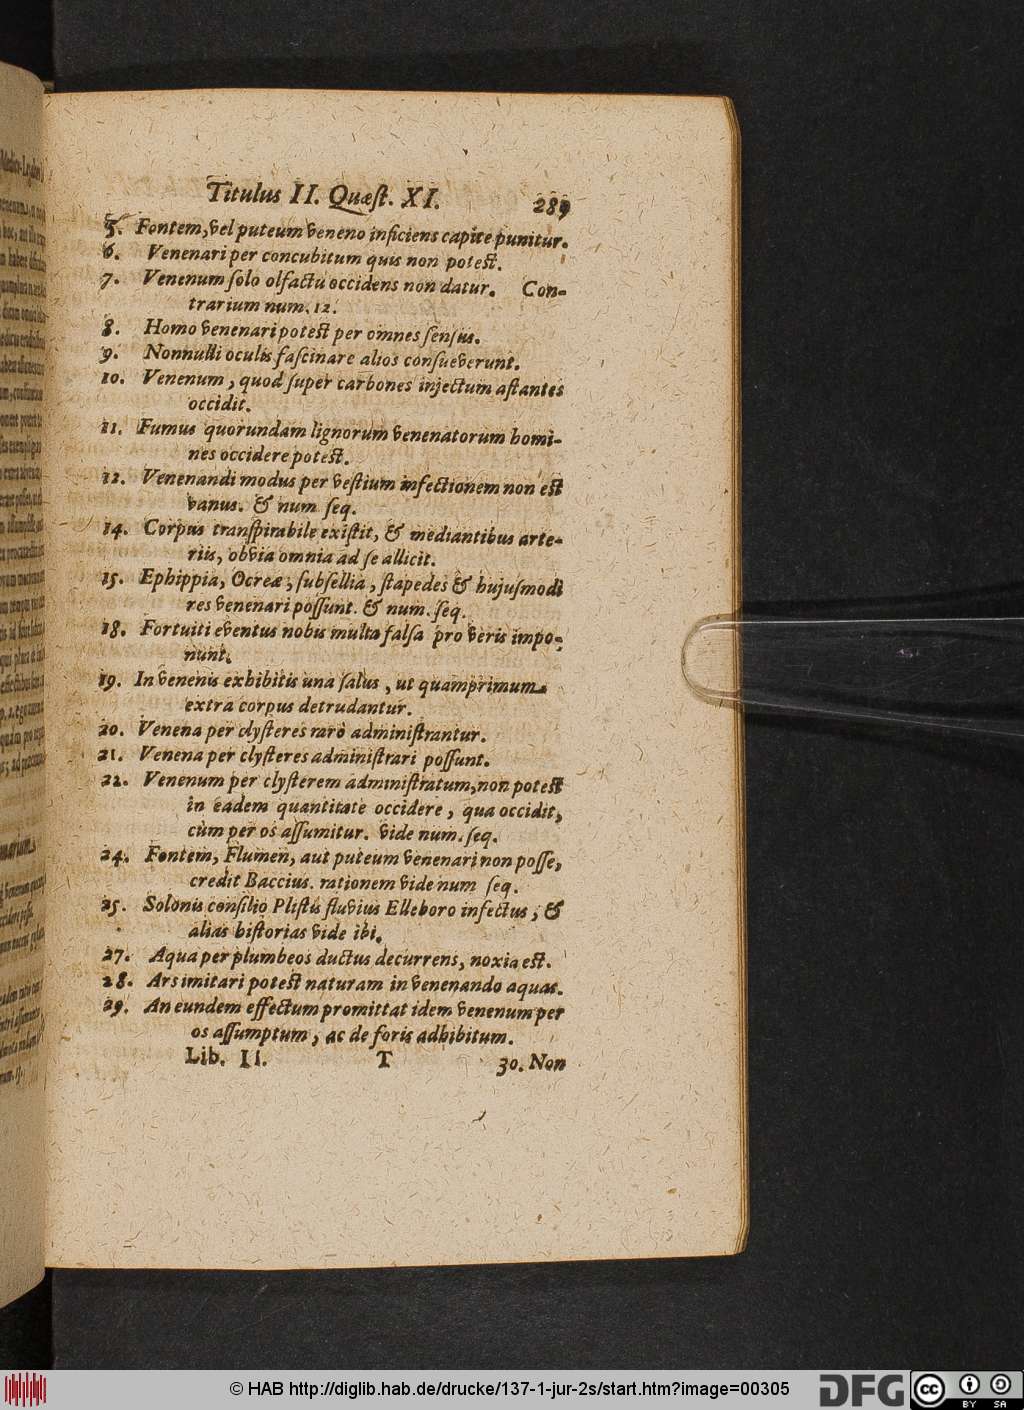 Titulus II. Quæſt. XI. 289
5. Fontem, vel puteum veneno inficiens capite punitur.
6. Venenari per concubitum quis non poteſt.
7. Venenum ſolo olfactu occidens non datur. Con-
trarium num. 12.
8. Homo venenari poteſt per omnes ſenſus.
9. Nonnulli oculis faſcinare alios conſueverunt.
10. Venenum, quod ſuper carbones injectum aſtantes
occidit.
11. Fumus quorundam lignorum venenatorum homi-
nes occidere poteſt.
12. Venenandi modus per veſtium infectionem non eſt
vanus. & num ſeq.
14. Corpus tranſpirabile exiſtit, & mediantibus arte-
riis, obvia omnia ad ſe allicit.
15. Ephippia, Ocreæ, ſubſellia, ſtapedes & hujuſmodi
res venenari poſſunt. & num. ſeq.
18. Fortuiti eventus nobis multa falſa pro veris impo-
nunt.
19. In venenis exhibitis una ſalus, ut quamprimum
extra corpus detrudantur.
20. Venena per clyſteres rarò adminiſtrantur.
21. Venena per clyſteres adminiſtrari poſſunt.
22. Venenum per clyſterem adminiſtratum, non poteſt
in eadem quantitate occidere, qua occidit,
cùm per os aſſumitur. vide num. ſeq.
24. Fontem, Flumen, aut puteum venenari non poſſe,
credit Baccius. rationem vide num ſeq.
25. Solonis conſilio Pliſtis fluvius Elleboro infectus, &
alias hiſtorias vide ibi.
27. Aqua per plumbeos ductus decurrens, noxia eſt.
28. Ars imitari poteſt naturam in venenando aquas.
29. An eundem effectum promittat idem venenum per
os aſſumptum, ac de foris adhibitum.
Lib. II. T 30. Non
© HAB http://diglib.hab.de/drucke/137-1-jur-2s/start.htm?image=00305
DFG
cc BY SA